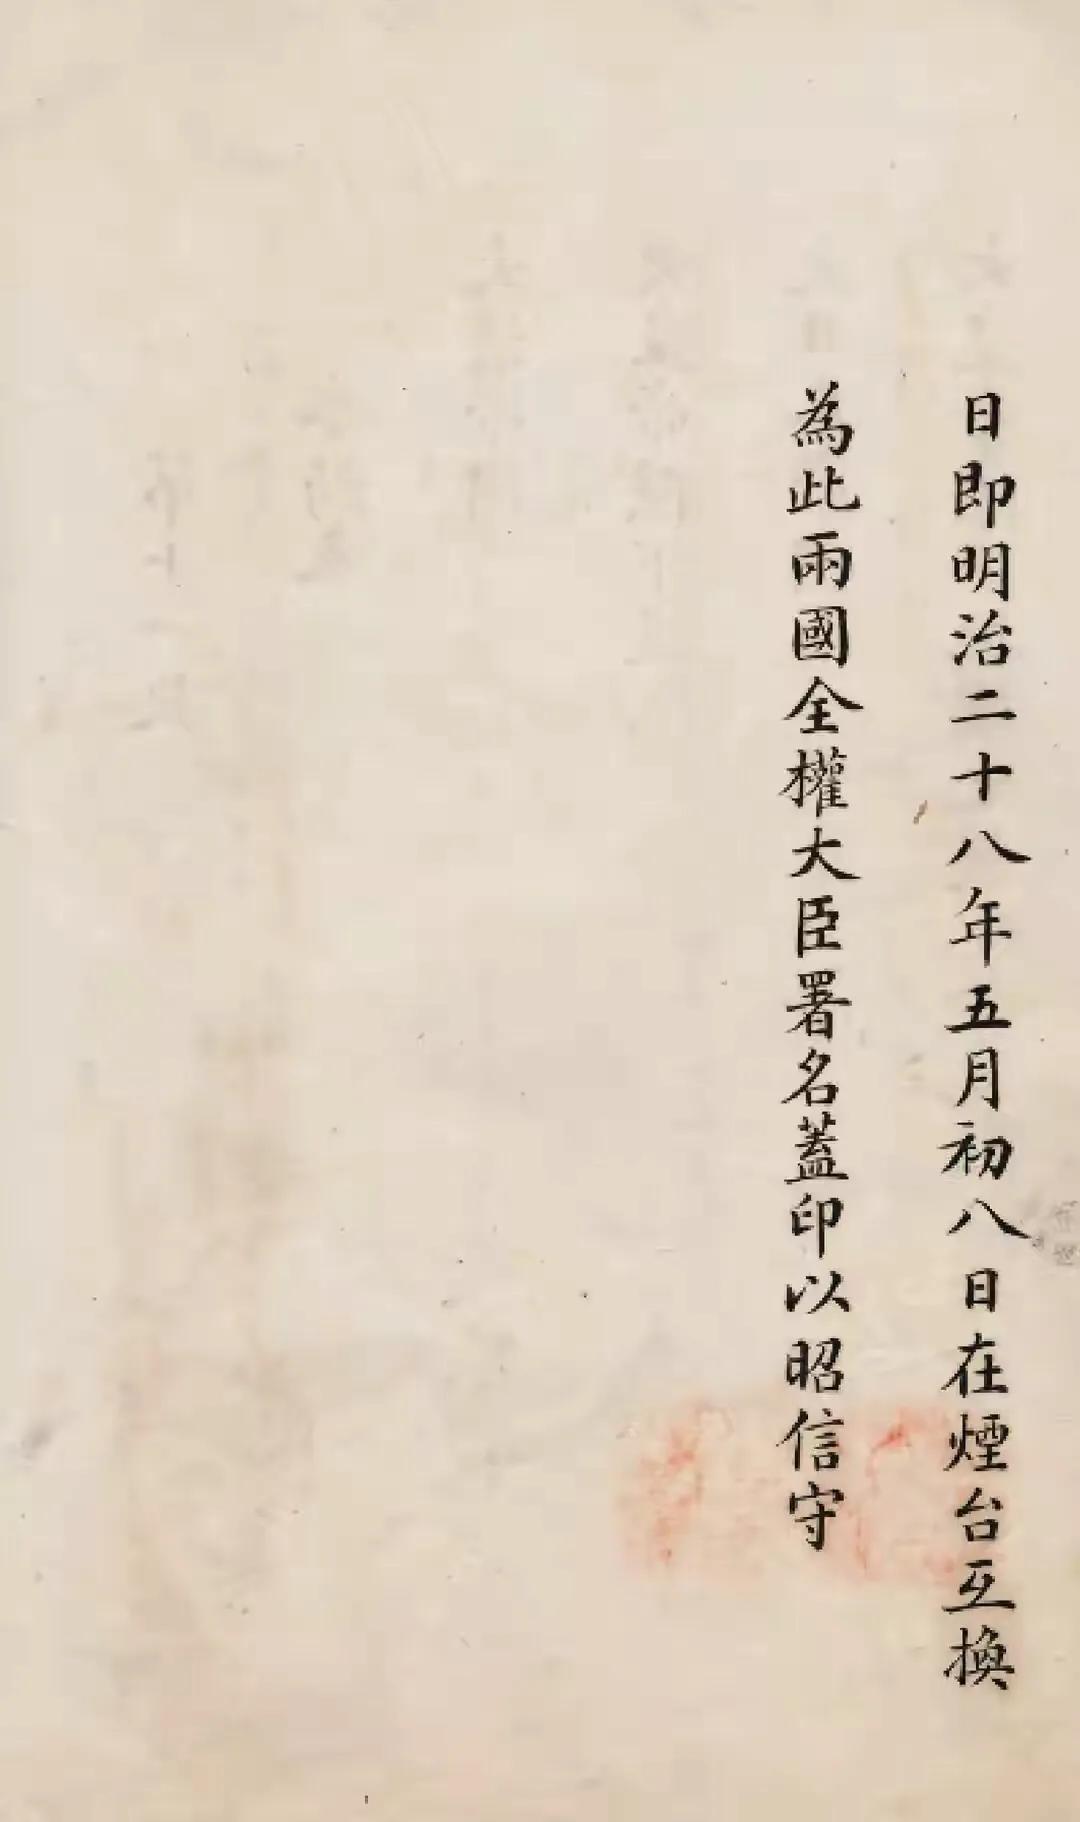 日即明治二十八年五月初八日在煙台互換
為此兩國全權大臣署名蓋印以昭信守